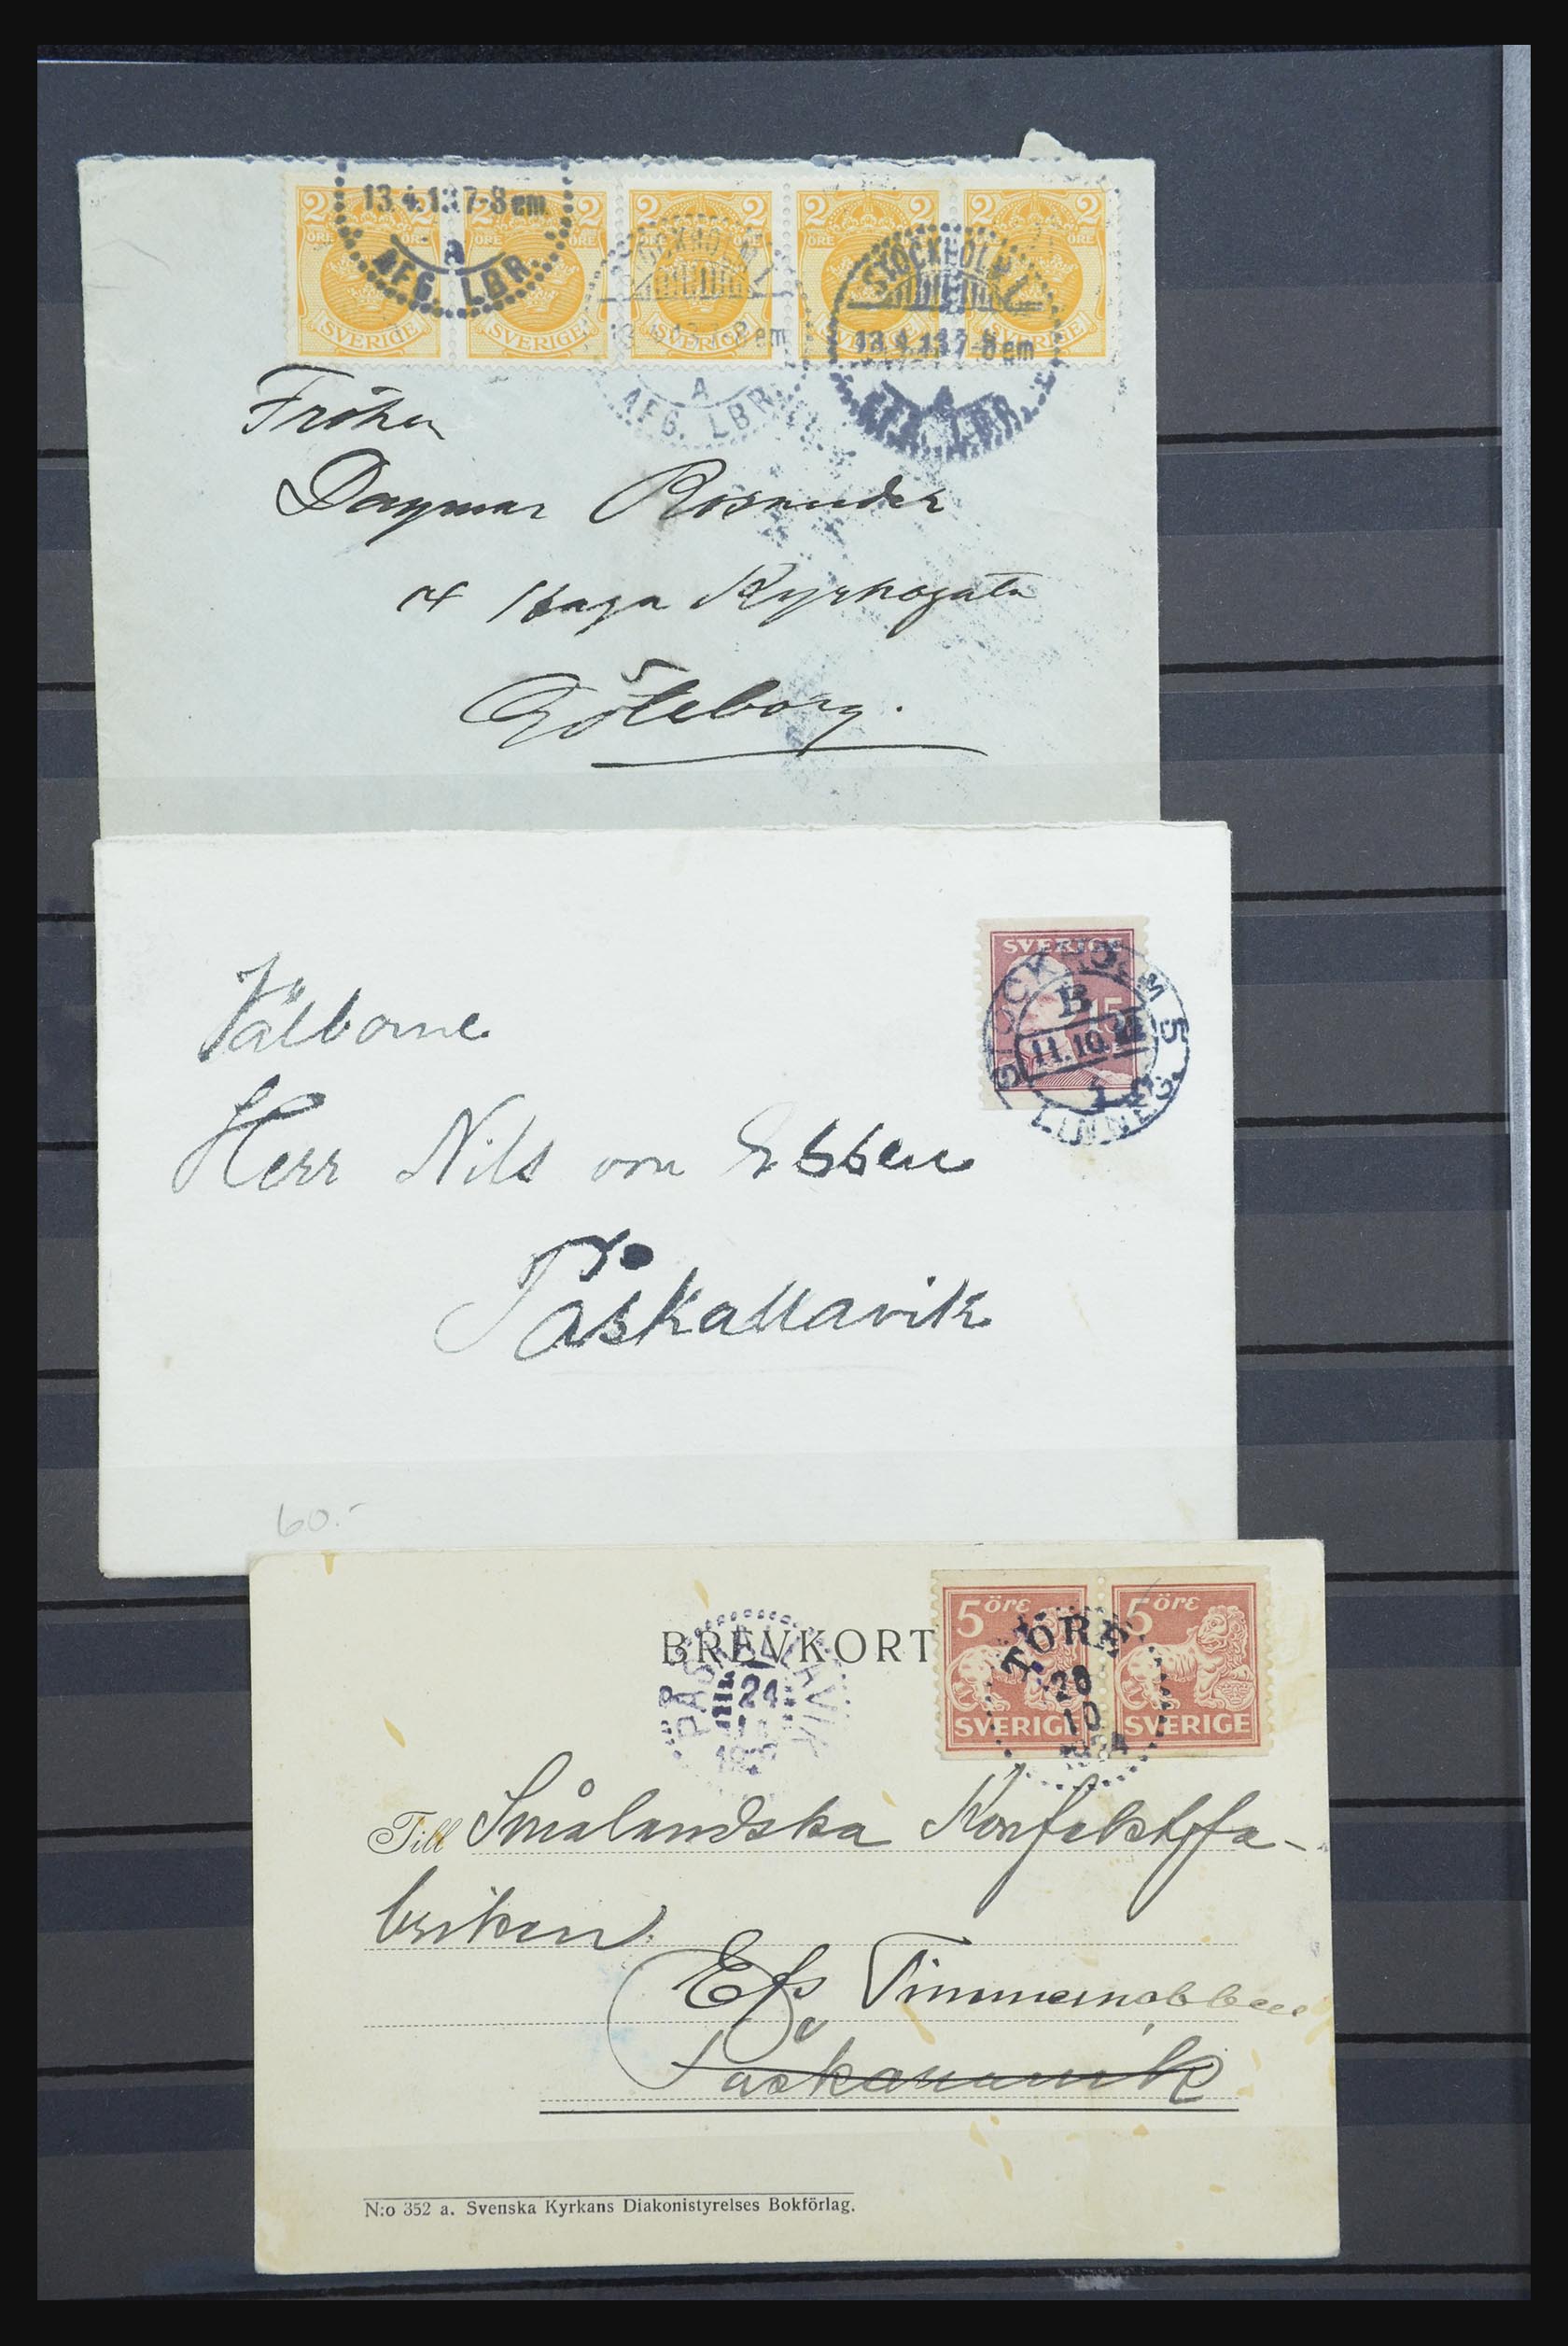 2 2 2 2 2 2 2
ÖRE ÖRE ÖRE ÖRE ÖRE
SVERIGE SVERIGE SVERIGE SVERIGE SVERIGE
13.4.13.7-8 em
A
AFG. LBR.
STOCKHOLM 1
13.4.13.7-8 em
A
AFG. LBR.
STOCKHOLM 1
13.4.13.7-8 em
A
Fröken
Dagmar
4 Haga Kyrkogata
Göteborg.
SVERIGE
15
STOCKHOLM 5
B
11.10.
Välborne
Herr Nils von Ebben
Påskallavik
60.-
BREVKORT
5 öre 5 öre
SVERIGE SVERIGE
TÖRE
20
10
PÅSKALLAVIK
24
Till Småländska Konfektfa-
briken
Efs Timmernabben
Påskallavik
N:o 352 a. Svenska Kyrkans Diakonistyrelses Bokförlag.